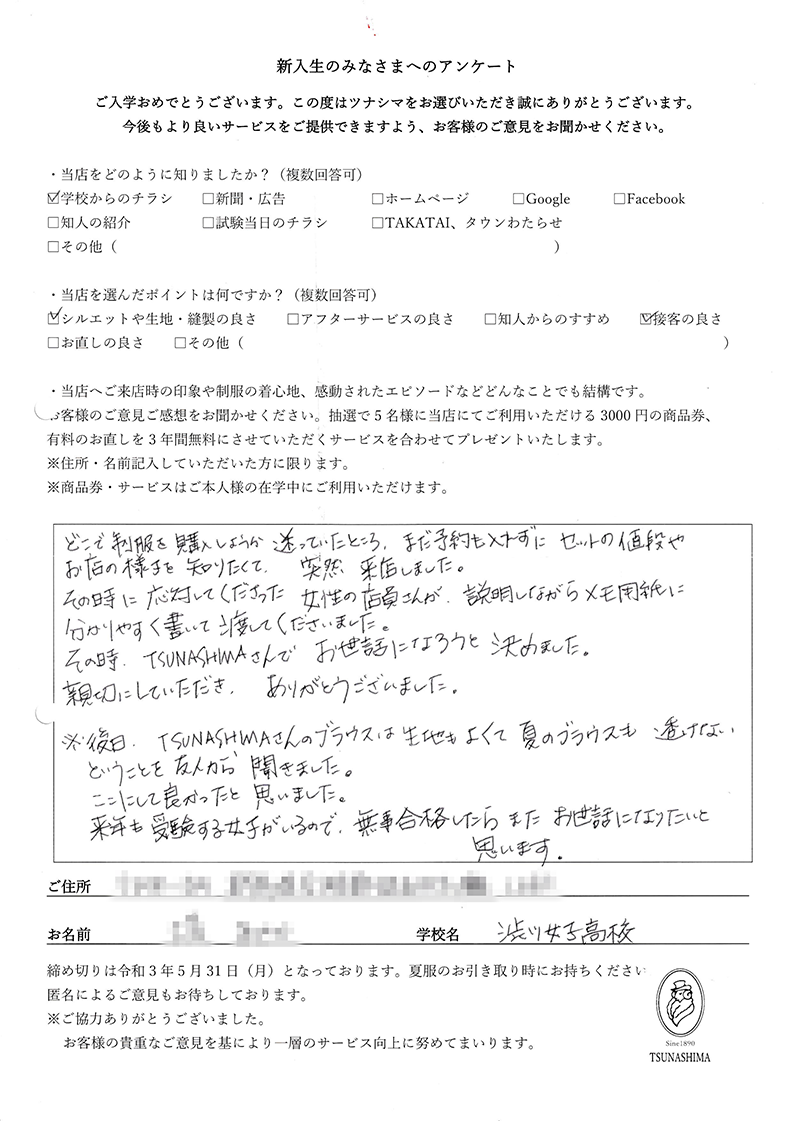 新入生のみなさまへのアンケート
ご入学おめでとうございます。この度はツナシマをお選びいただき誠にありがとうございます。
今後もより良いサービスをご提供できますよう、お客様のご意見をお聞かせください。
・当店をどのように知りましたか？（複数回答可）
☑学校からのチラシ □新聞・広告 □ホームページ □Google □Facebook
□知人の紹介 □試験当日のチラシ □TAKATAI、タウンわたらせ
□その他（ ）
・当店を選んだポイントは何ですか？（複数回答可）
☑シルエットや生地・縫製の良さ □アフターサービスの良さ □知人からのすすめ ☑接客の良さ
□お直しの良さ □その他（ ）
・当店へご来店時の印象や制服の着心地、感動されたエピソードなどどんなことでも結構です。
お客様のご意見ご感想をお聞かせください。抽選で5名様に当店にてご利用いただける3000円の商品券、
有料のお直しを3年間無料にさせていただくサービスを合わせてプレゼントいたします。
※住所・名前記入していただいた方に限ります。
※商品券・サービスはご本人様の在学中にご利用いただけます。
どこで制服を購入しようか迷っていたところ、まだ予約も入れずにセットの値段や
お店の様子を知りたくて、突然来店しました。
その時に応対してくださった女性の店員さんが、説明しながらメモ用紙に
分かりやすく書いて渡してくださいました。
その時、TSUNASHIMAさんでお世話になろうと決めました。
親切にしていただき、ありがとうございました。
※後日、TSUNASHIMAさんのブラウスは生地もよくて夏のブラウスも透けない
ということを友人から聞きました。
ここにして良かったと思いました。
来年も受験する女子がいるので、無事合格したらまたお世話になりたいと
思います。
ご住所
お名前 学校名 渋川女子高校
締め切りは令和3年5月31日（月）となっております。夏服のお引き取り時にお持ちください
匿名によるご意見もお待ちしております。
※ご協力ありがとうございました。
お客様の貴重なご意見を基により一層のサービス向上に努めてまいります。
Sine1890
TSUNASHIMA